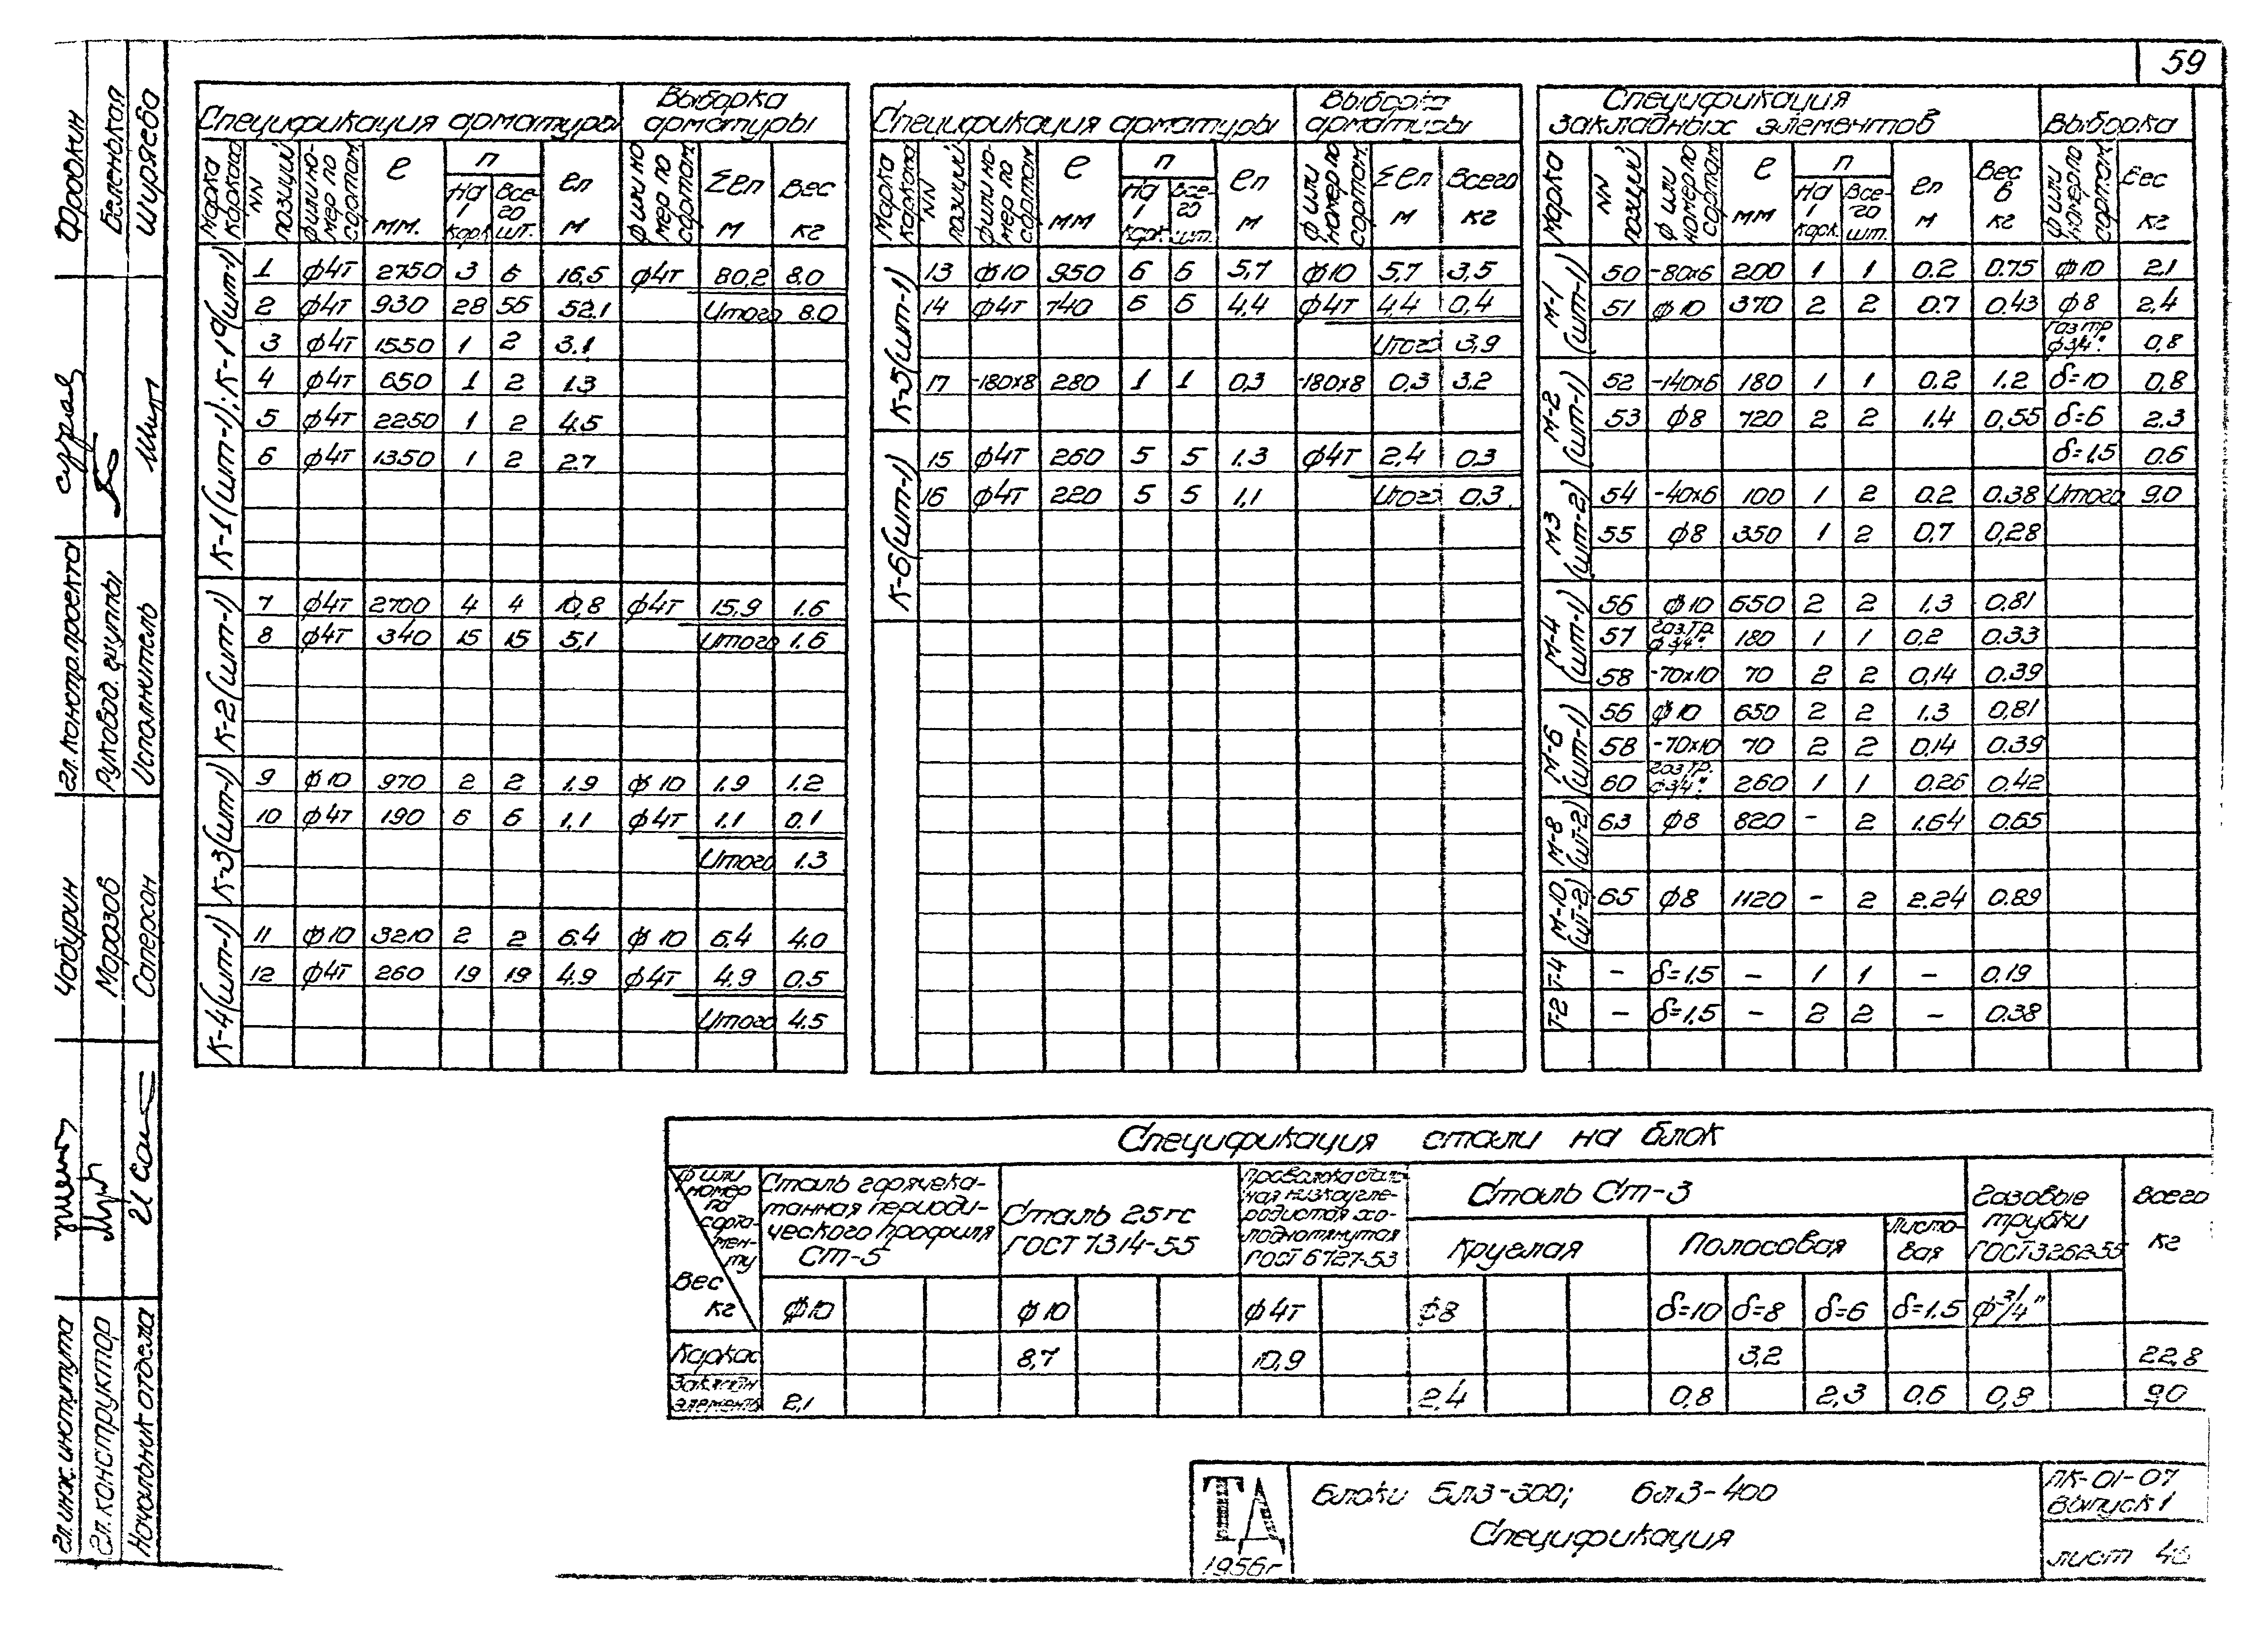 59
Спецификация арматуры Выборка арматуры
Марка каркаса NN позиций ф или номер по сортам. ℓ мм. n На 1 карк. Всего шт. ℓn м ф или номер по сортам. Σℓn м Вес кг
К-1 (шт-1); К-1а (шт-1)
1 ф4т 2750 3 6 16,5 ф4т 80,2 8.0
2 ф4т 930 28 56 52.1 Итого 8.0
3 ф4т 1550 1 2 3.1
4 ф4т 650 1 2 1.3
5 ф4т 2250 1 2 4.5
6 ф4т 1350 1 2 2.7
К-2 (шт-1)
7 ф4т 2700 4 4 10,8 ф4т 15.9 1.6
8 ф4т 340 15 15 5,1 Итого 1.6
К-3 (шт-1)
9 ф10 970 2 2 1.9 ф10 1.9 1.2
10 ф4т 190 6 6 1.1 ф4т 1.1 0.1
Итого 1.3
К-4 (шт-1)
11 ф10 3210 2 2 6.4 ф10 6.4 4.0
12 ф4т 260 19 19 4.9 ф4т 4.9 0.5
Итого 4.5
Спецификация арматуры Выборка арматуры
Марка каркаса NN позиций ф или номер по сортам. ℓ мм n На 1 карк. Всего шт. ℓn м ф или номер по сортам. Σℓn м Всего кг
К-5 (шт-1)
13 ф10 950 6 6 5,7 ф10 5,7 3,5
14 ф4т 740 6 6 4,4 ф4т 4,4 0,4
Итого 3,9
17 -180х8 280 1 1 0,3 -180х8 0,3 3.2
К-6 (шт-1)
15 ф4т 260 5 5 1.3 ф4т 2,4 0.3
16 ф4т 220 5 5 1,1 Итого 0.3
Спецификация закладных элементов Выборка
Марка NN позиций ф или номер по сортам ℓ мм n На 1 карк. Всего шт. ℓn м Вес в кг ф или номер по сортам. Вес кг
М-1 (шт-1)
50 -80х6 200 1 1 0.2 0.75 ф10 2.1
51 ф10 370 2 2 0.7 0.43 ф8 2,4
Газ тр ф3/4" 0,8
М-2 (шт-1)
52 -140х6 180 1 1 0.2 1.2 δ=10 0,8
53 ф8 720 2 2 1.4 0,55 δ=6 2.3
δ=1,5 0.6
М3 (шт-2)
54 -40х6 100 1 2 0.2 0.38 Итого 9.0
55 ф8 350 1 2 0.7 0,28
М-4 (шт-1)
56 ф10 650 2 2 1.3 0.81
57 газ.тр. ф3/4" 180 1 1 0.2 0.33
58 -70х10 70 2 2 0,14 0.39
М-6 (шт-1)
56 ф10 650 2 2 1.3 0,81
58 -70х10 70 2 2 0.14 0.39
60 газ.тр. ф3/4" 260 1 1 0.26 0.42
М-8 (шт-2)
63 ф8 820 - 2 1.64 0.65
М-10 (шт-2)
65 ф8 1120 - 2 2.24 0.89
Т-4 - δ=1.5 - 1 1 - 0.19
Т-2 - δ=1.5 - 2 2 - 0.38
Спецификация стали на блок
ф или номер по сортаменту Вес кг
Сталь горячекатанная периодического профиля Ст-5
Сталь 25гс ГОСТ 7314-55
Проволока стальная низкоуглеродистая холоднотянутая ГОСТ 6727-53
Сталь Ст-3
Круглая Полосовая Листовая
Газовые трубки ГОСТ 3262-55
Всего кг
ф10 ф10 ф4т ф8 δ=10 δ=8 δ=6 δ=1.5 ф3/4"
Каркас 8,7 10,9 3,2 22,8
Закладн элементы 2,1 2,4 0,8 2,3 0,6 0,8 9,0
ТА
1956г
Блоки Бл3-300; Бл3-400
Спецификация
ПК-01-07
Выпуск 1
лист 46
Гл. инж. института Чабурин Гл. констр. проекта Фродкин
Гл. конструктор Морозов Руковод. группы Беленькая
Начальник отдела Соперсон Исполнитель Ширяева